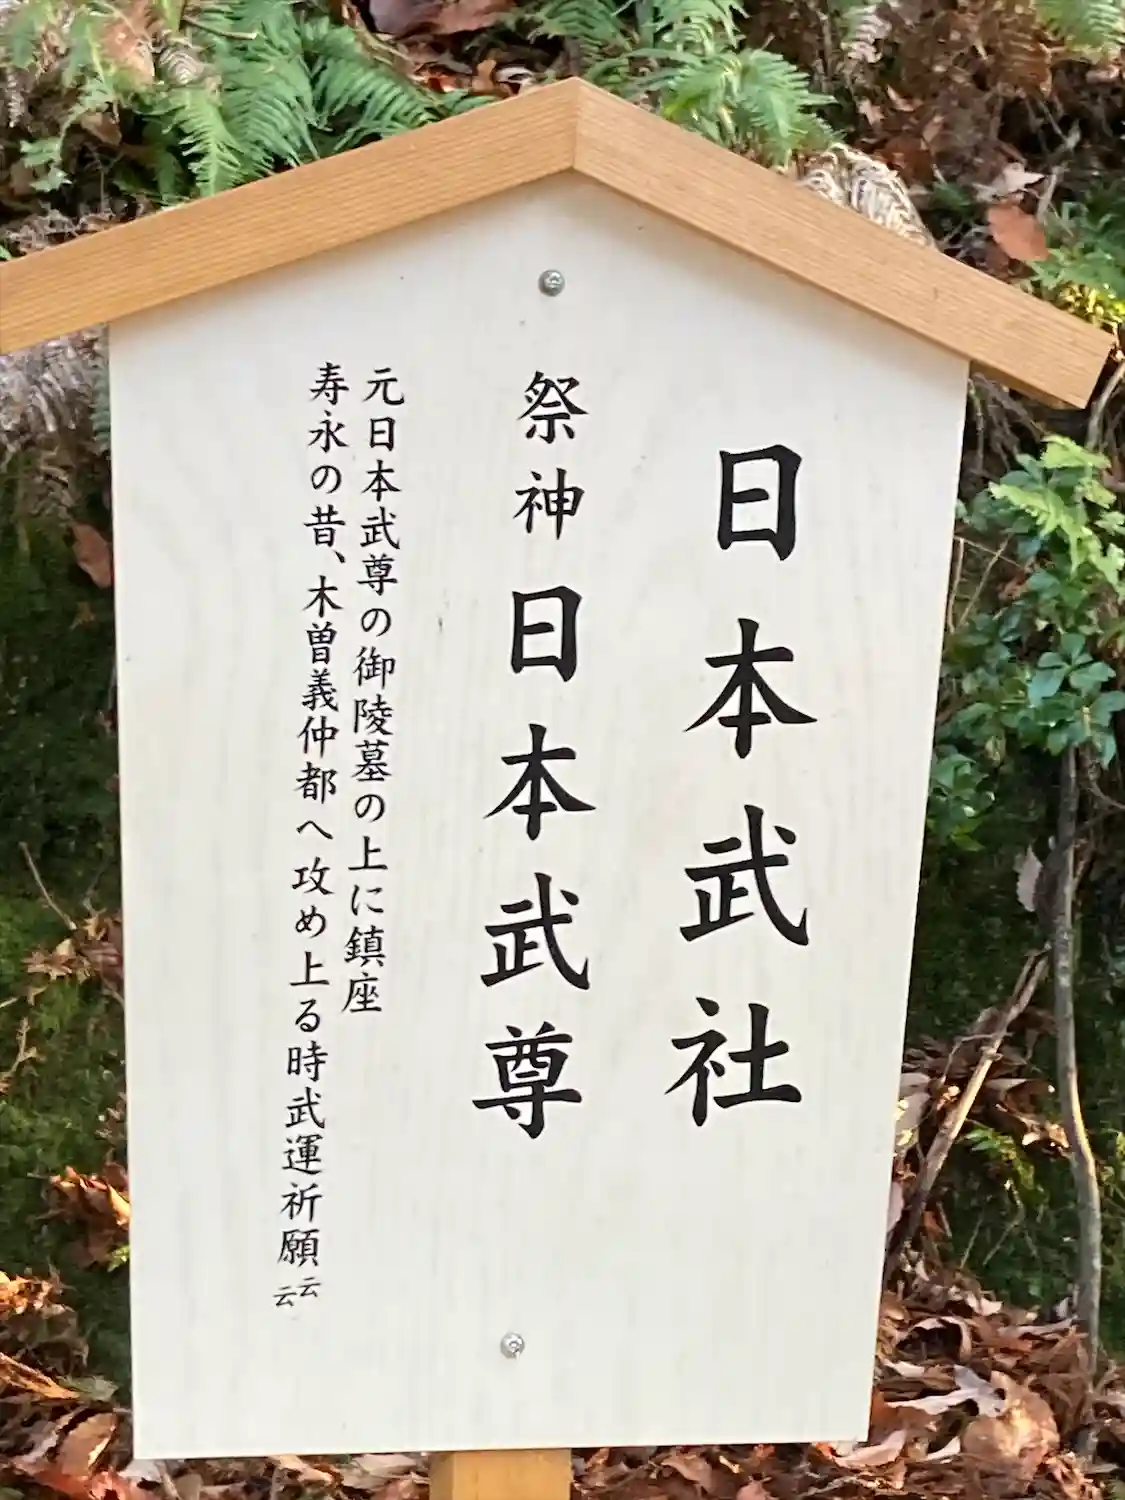 日本武社
祭神 日本武尊
元日本武尊の御陵墓の上に鎮座
寿永の昔、木曽義仲都へ攻め上る時武運祈願云云